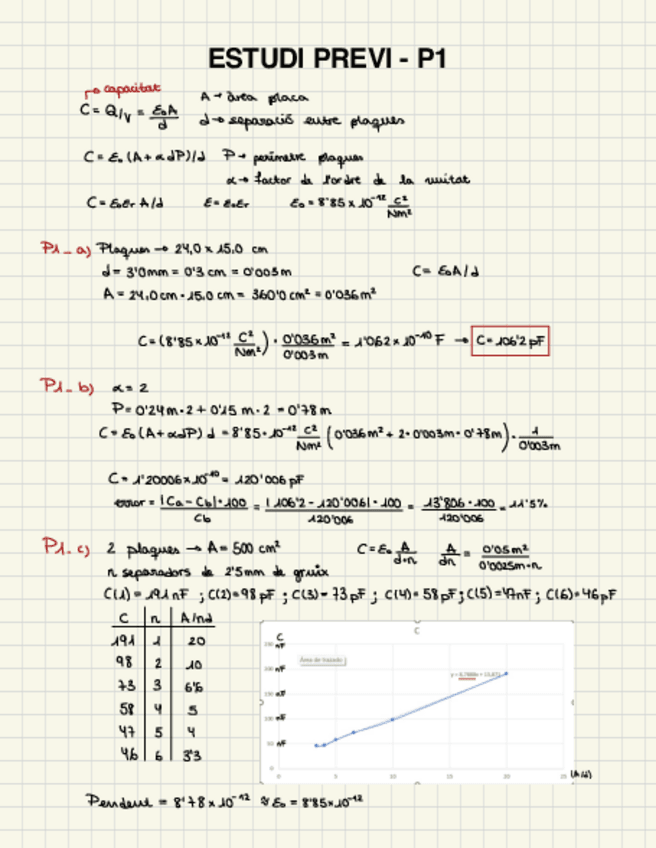 ESTUDI PREVI - P1
capacitat
C = Q/V = ε₀A/d    A → àrea placa
d → separació entre plaques
C = ε₀ (A + αdP)/d    P → perímetre plaques
α → factor de l'ordre de la unitat
C = ε₀εr A/d    ε = ε₀εr    ε₀ = 8'85 x 10⁻¹² C²/Nm²
P1_a) Plaques → 24,0 x 15,0 cm
d = 3'0mm = 0'3 cm = 0'003m    C = ε₀A/d
A = 24,0cm · 15,0 cm = 360'0 cm² = 0'036m²
C = (8'85 x 10⁻¹² C²/Nm²) · 0'036m²/0'003m = 1'062 x 10⁻¹⁰ F → C = 106'2 pF
P1_b) α = 2
P = 0'24m·2 + 0'15m·2 = 0'78m
C = ε₀ (A + αdP) d = 8'85·10⁻¹² C²/Nm² (0'036m² + 2·0'003m·0'78m) · 1/0'003m
C = 1'20006x10⁻¹⁰ = 120'006 pF
error = |Ca - Cb|·100/Cb = |106'2 - 120'006|·100/120'006 = 13'806·100/120'006 = 11'5%
P1_c) 2 plaques → A = 500 cm²    C = ε₀ A/d·n    A/dn = 0'05m²/0'0025m·n
n separadors de 2'5mm de gruix
C(1) = 191nF ; C(2) = 98pF ; C(3) = 73pF ; C(4) = 58pF ; C(5) = 47nF ; C(6) = 46pF
C | n | A/nd
191 | 1 | 20
98 | 2 | 10
73 | 3 | 6'6
58 | 4 | 5
47 | 5 | 4
46 | 6 | 3'3
C
C
Área de trazado
0 5 10 15 20 25
(A/d)
Pendent = 8'78 x 10⁻¹² ≈ ε₀ = 8'85x10⁻¹²